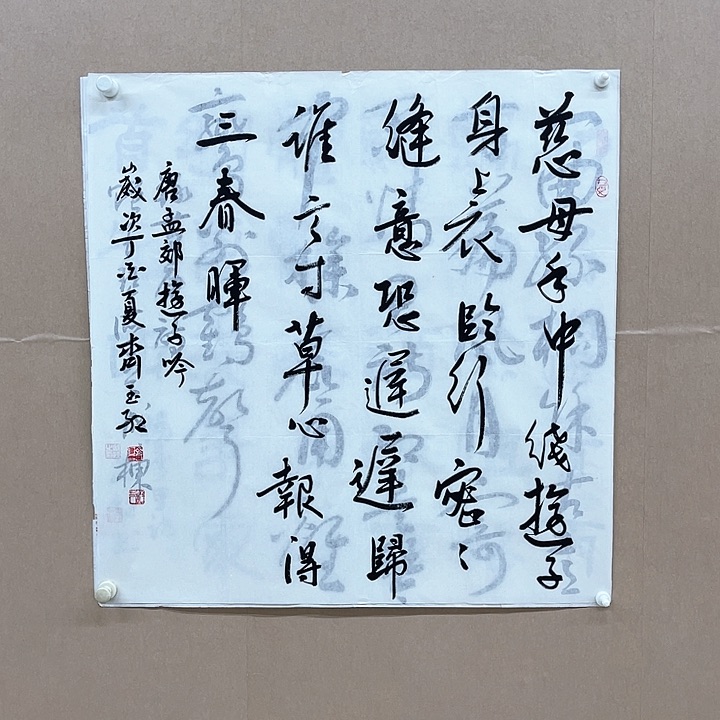 慈母手中线遊子
身上衣臨行密〻
縫意恐遲遲歸
誰言寸草心報得
三春暉
唐孟郊遊子吟
歲次丁酉夏齊玉